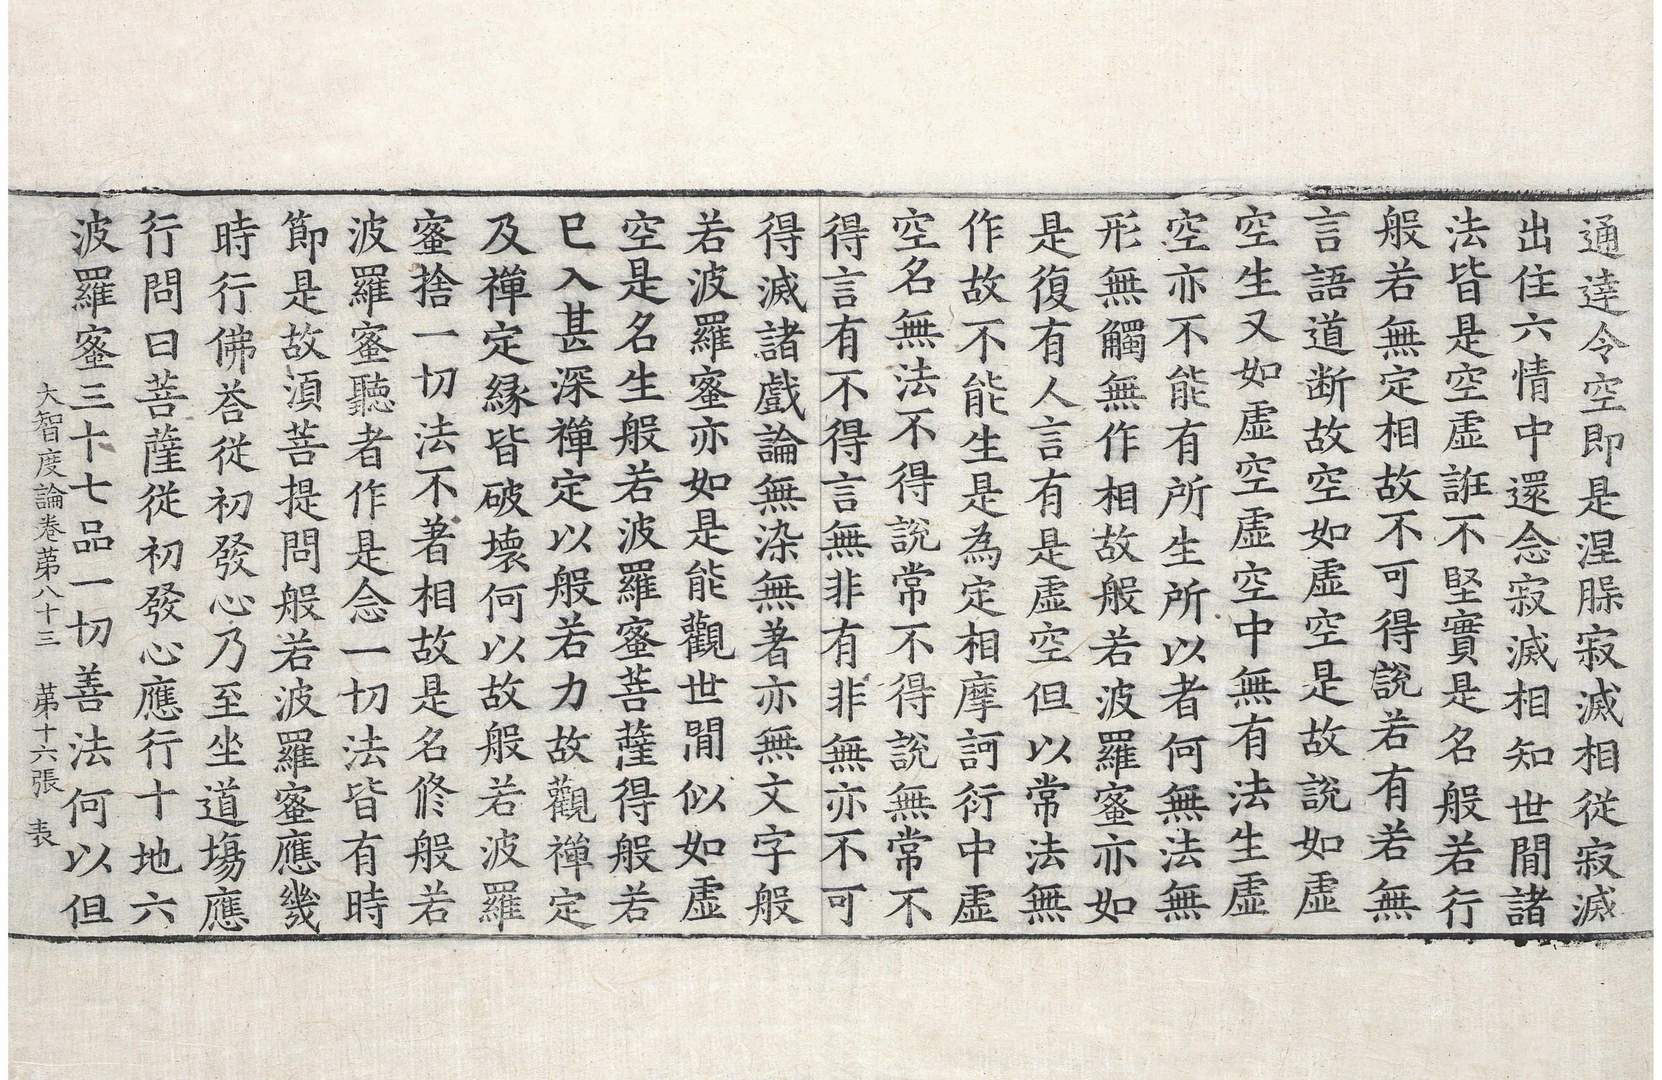 通達令空即是涅槃寂滅相從寂滅
出住六情中還念寂滅相知世間諸
法皆是空虛誑不堅實是名般若行
般若無定相故不可得說若有若無
言語道断故空如虛空是故說如虛
空生又如虛空虛空中無有法生虛
空亦不能有所生所以者何無法無
形無觸無作相故般若波羅蜜亦如
是復有人言有是虛空但以常法無
作故不能生是為定相摩訶衍中虛
空名無法不得說常不得說無常不
得言有不得言無非有非無亦不可
得滅諸戲論無染無著亦無文字般
若波羅蜜亦如是能觀世間似如虛
空是名生般若波羅蜜菩薩得般若
已入甚深禪定以般若力故觀禪定
及禪定緣皆破壞何以故般若波羅
蜜捨一切法不著相故是名修般若
波羅蜜聽者作是念一切法皆有時
節是故須菩提問般若波羅蜜應幾
時行佛荅從初發心乃至坐道場應
行問曰菩薩從初發心應行十地六
波羅蜜三十七品一切善法何以但
大智度論卷苐八十三 苐十六張 表